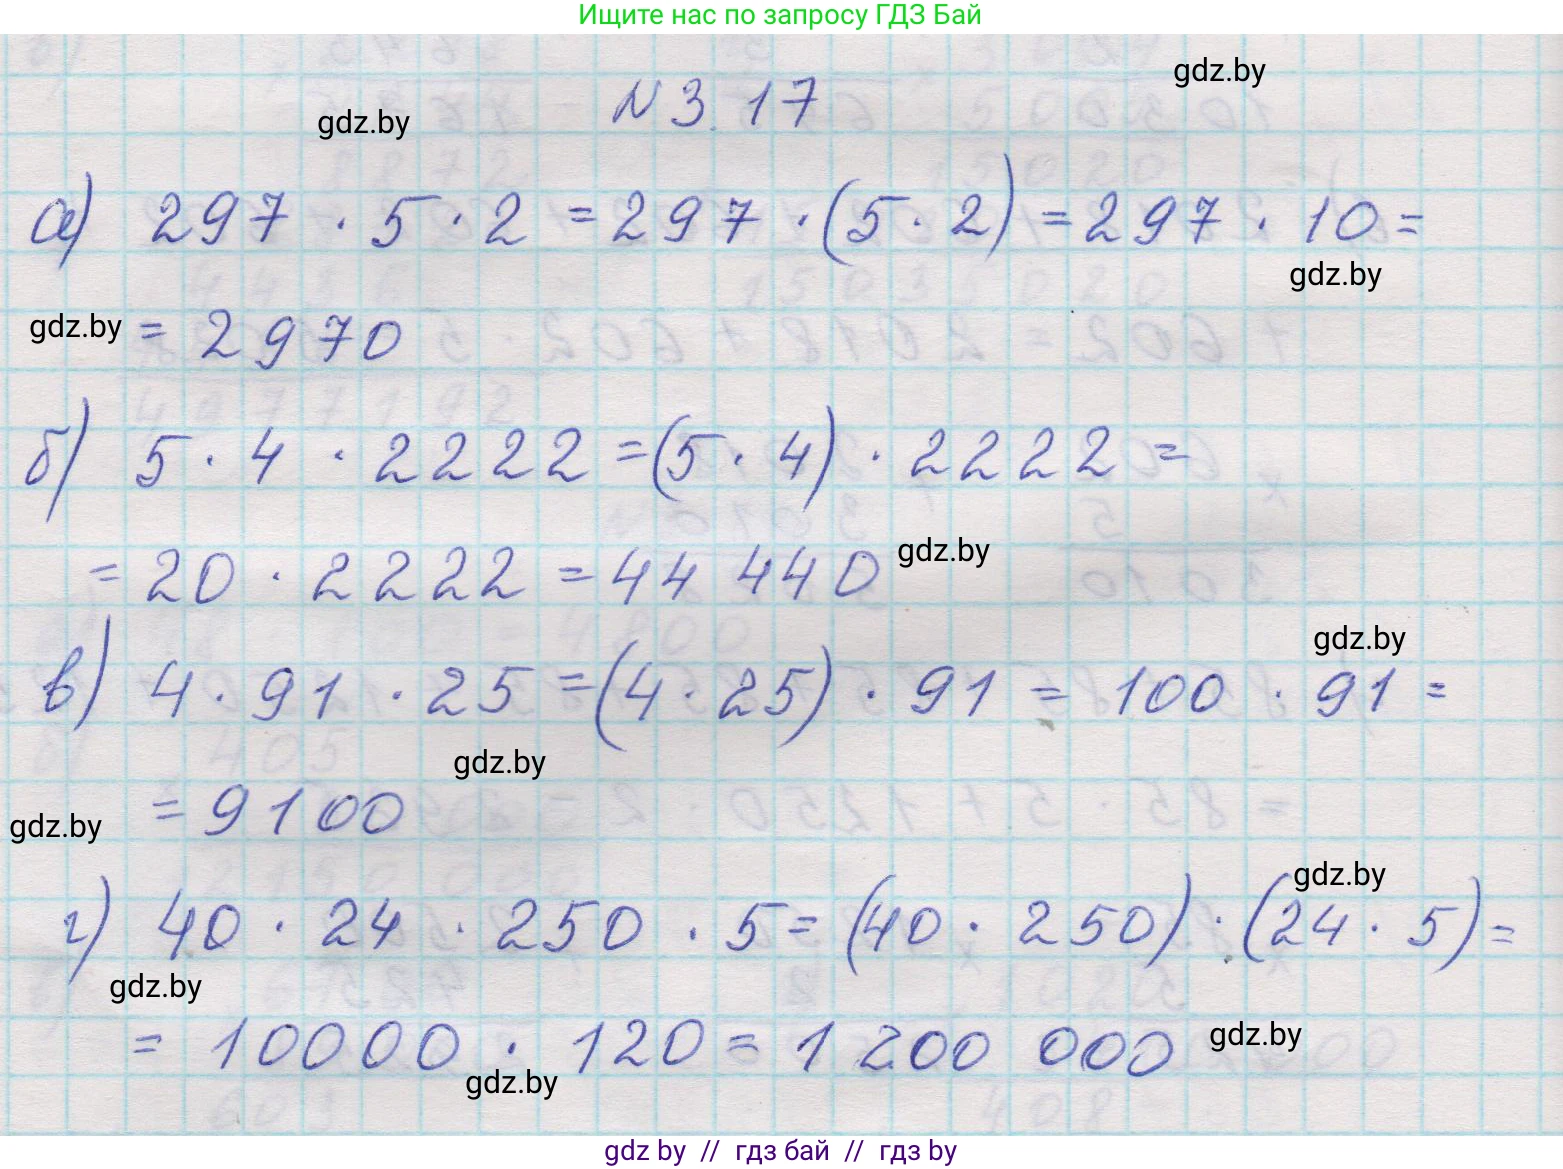 Ищите нас по запросу ГДЗ Бай
gdz.by
N 3.17
gdz.by
а) 297 · 5 · 2 = 297 · (5 · 2) = 297 · 10 =
gdz.by
gdz.by
= 2970
б) 5 · 4 · 2222 = (5 · 4) · 2222 =
= 20 · 2222 = 44 440
gdz.by
gdz.by
в) 4 · 91 · 25 = (4 · 25) · 91 = 100 · 91 =
gdz.by
= 9100
gdz.by
gdz.by
г) 40 · 24 · 250 · 5 = (40 · 250) · (24 · 5) =
gdz.by
= 10000 · 120 = 1 200 000
gdz.by
gdz.by
gdz by // гдз бай // гдз by